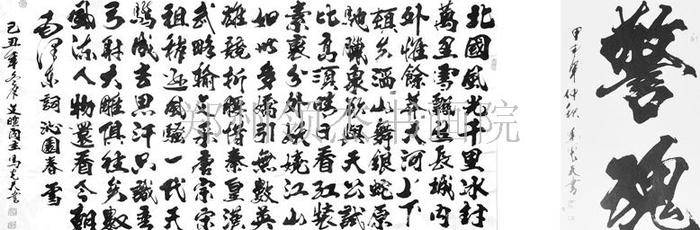 北國風光千里冰封
萬里雪飄望長城內
外惟餘莽々大河上下
頓失滔々山舞銀蛇原
馳臘象欲與天公試
比高須晴日看紅裝
素裹分外妖嬈江山
如此多嬌引無數英
雄競折腰惜秦皇漢
武略輸文采唐宗宋
祖稍遜風騷一代天
驕成吉思汗只識彎
弓射大雕俱往矣數
風流人物還看今朝
毛澤東詞沁園春雪
己丑年
警魂
甲子年仲秋
郑州 书画院